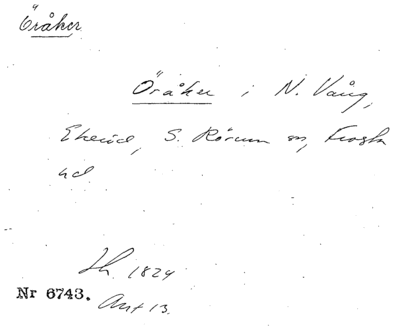 Öråker
Öråker i N. Vång,
Ekeröd, S. Rörum sn, Frosta
hd
Lh. 1824
Nr 6743. Avt 13.